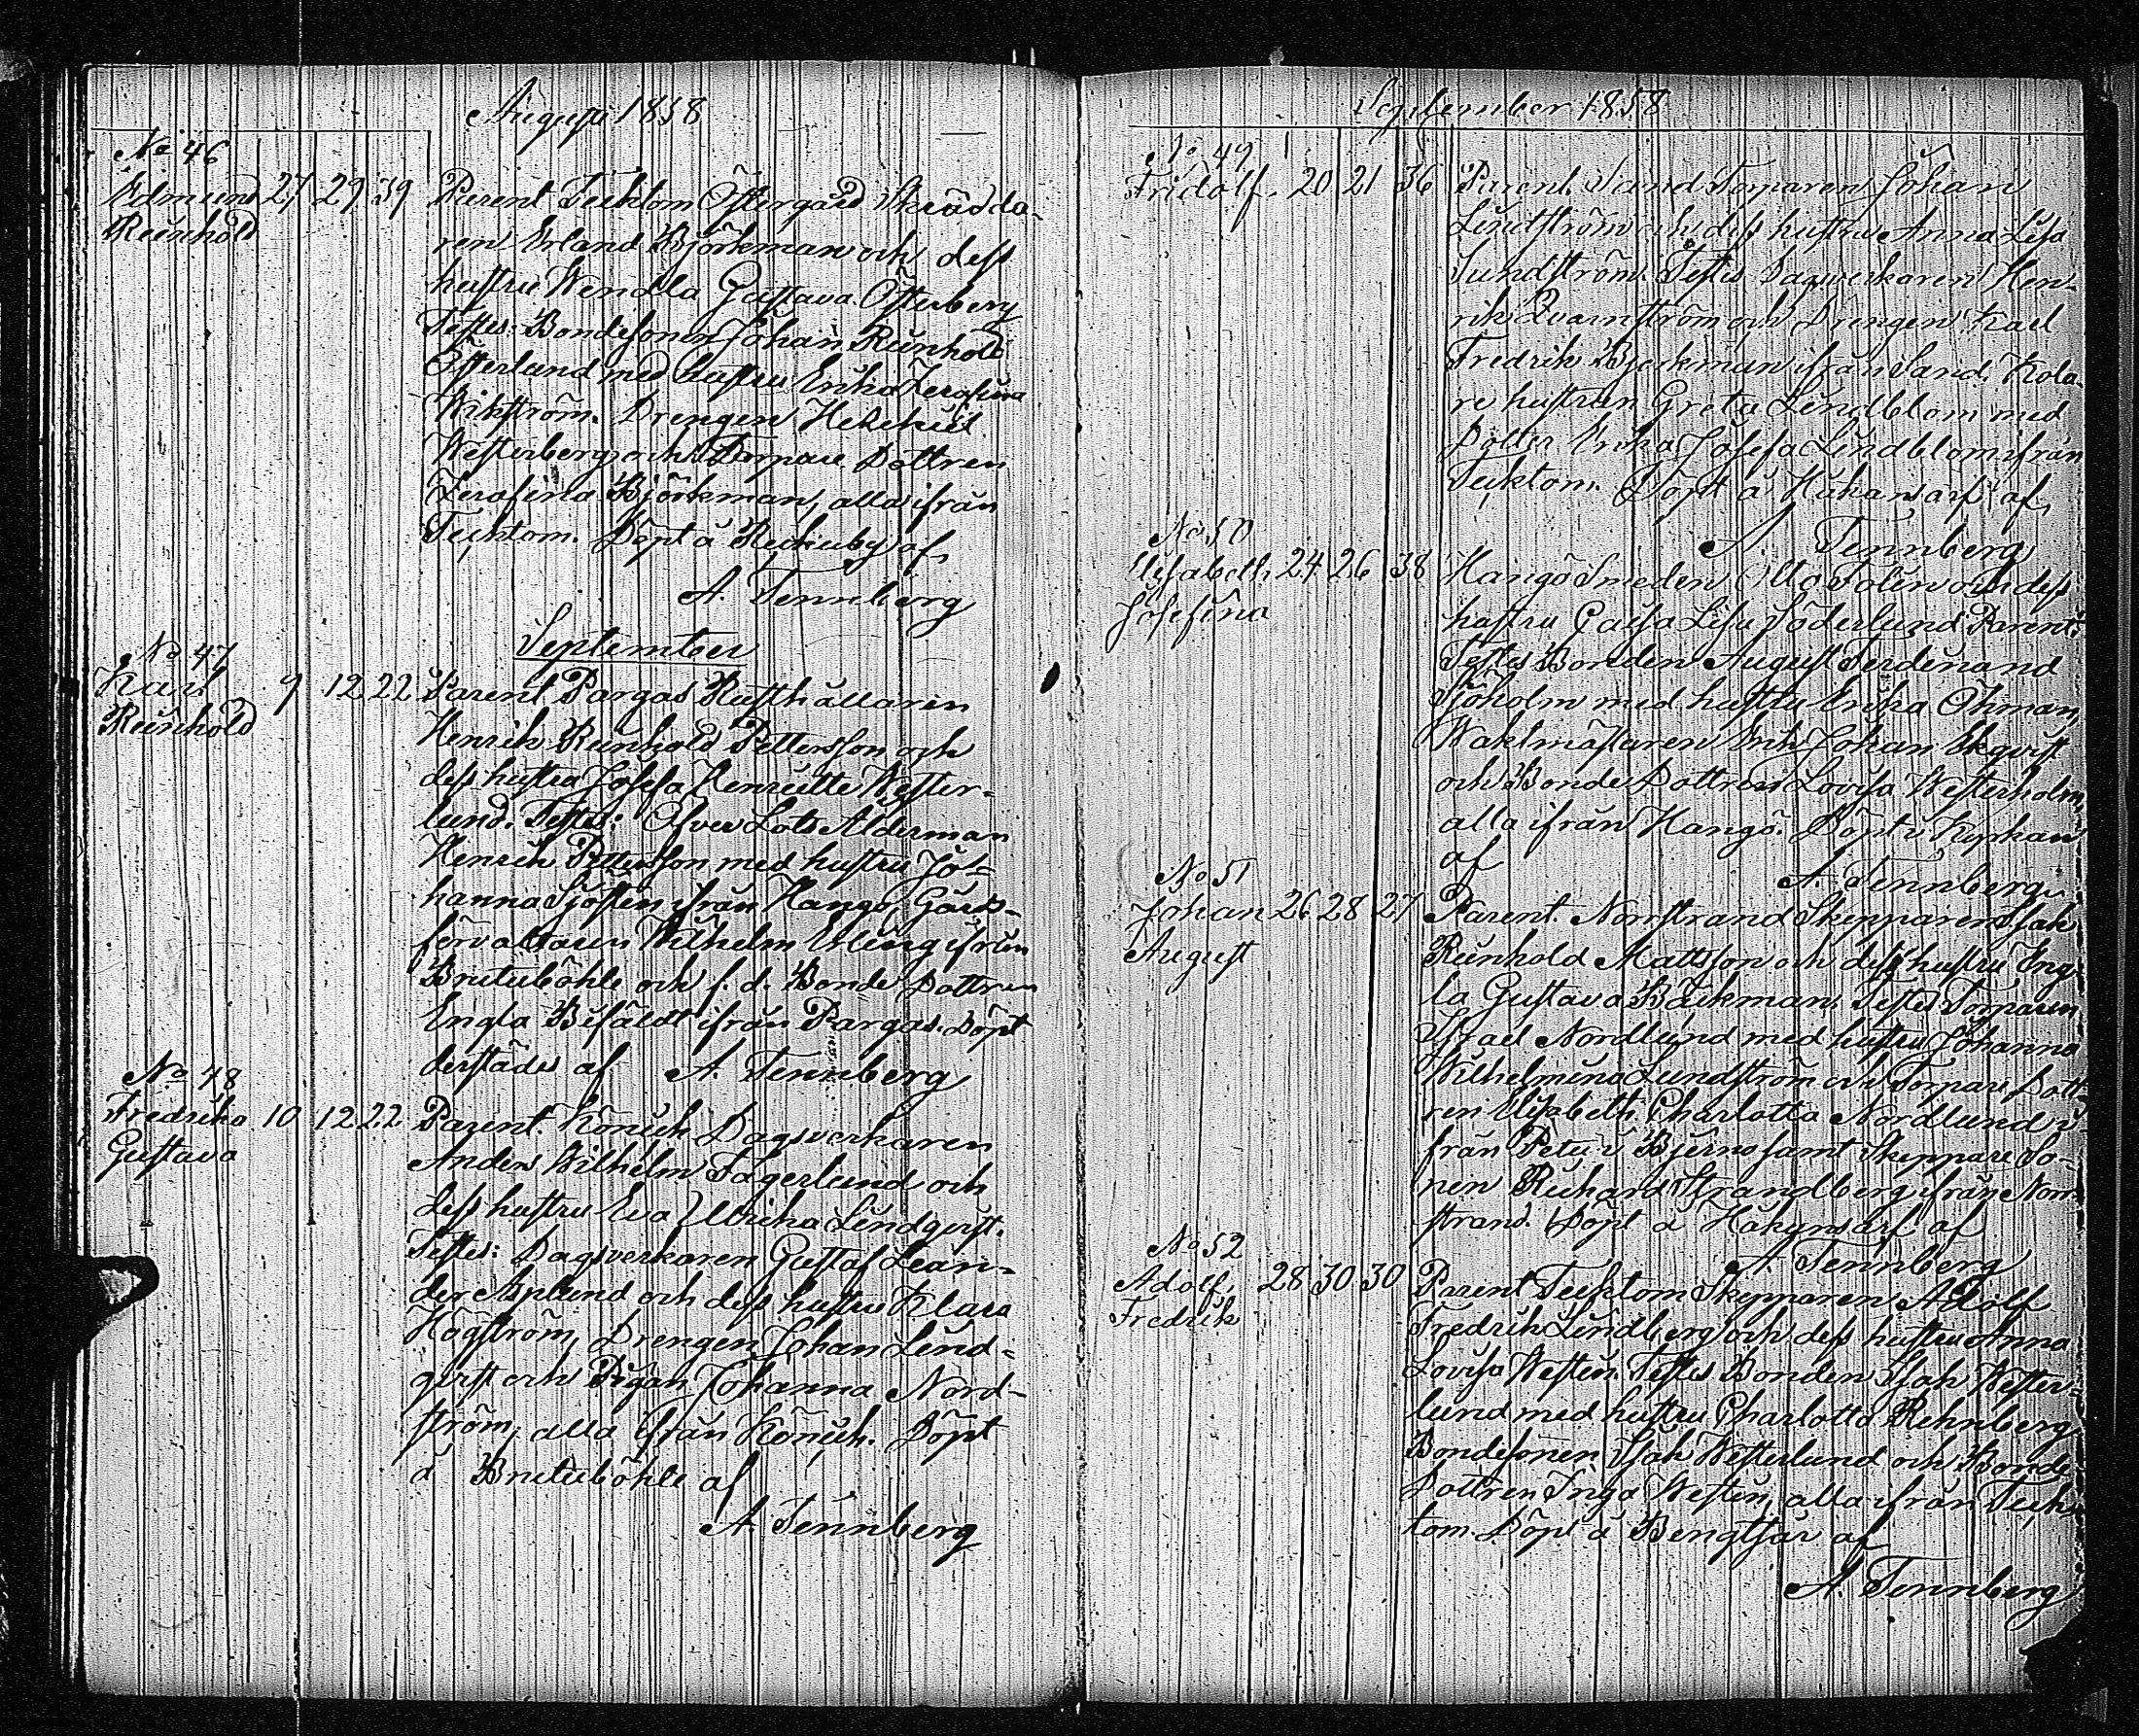 Augusti 1858
No 46
Edmund 27 29 39 Parent Tecktom Östergård Skrädda-
Reinhold
ren Erland Björkman och dess
hustru Wendla Gustava Österberg
Testes: Bondesonen Johan Reinhold
Österlund med hustru Erika Zerafina
Wikström. Drengen Hesekiel
Westerberg och Torpare Dottren
Zerafina Björkman, alla ifrån
Tecktom. Döpt å Reckuby af
A. Tennberg
September
No 47
Karl 9 12 22 Parent Pargas Rusthållaren
Reinhold
Henrik Reinhold Pettersson och
dess hustru Josefa Henriette Wester-
lund. Testes: Öfver Lots Ålderman
Henrik Pettersson med hustru Jo-
hanna Sjösten ifrån Hangö, Gårds-
förvaltaren Wilhelm Erling ifrån
Bruteböhle och f. d. Bonde Dottren
Engla Bifäldt ifrån Pargas. Döpt
derstädes af A. Tennberg
No 48
Fredrika 10 12 22 Parent. Könick Dagsverkaren
Gustava
Anders Wilhelm Fagerlund och
dess hustru Eva Ulricka Lindqvist.
Testes: Dagsverkaren Gustaf Lean-
der Asplund och dess hustru Klara
Hogström, Drengen Johan Lind-
qvist och Pigan Johanna Nord-
ström, alla ifrån Könick. Döpt
å Bruteböhle af
A. Tennberg
September 1858
No 49
Fridolf 20 21 36 Parent. Sand Torparen Johan
Lindström och dess hustru Anna Lisa
Sundström. Testes Dagsverkaren Hen-
rik Qvarnström och Drengen Karl
Fredrik Bjerkman ifrån Sand, Kola-
re hustrun Greta Lindblom med
Dotter Erika Josefa Lindblom ifrån
Tecktom. Döpt å Håkansarf af
A. Tennberg
No 50
Elisabeth 24 26 38 Hangö Smeden Otto Tolin och dess
Josefina
hustru Caisa Lisa Söderlund Parent.
Testes Bonden August Ferdinand
Sjöholm med hustru Erika Öhman,
Waktmästaren Erik Johan Ekqvist
och Bonde Dottren Lovisa Westerholm,
alla ifrån Hangö. Döpt i Kyrkan
af
A. Tennberg
No 51
Johan 26 28 27 Parent. Norrstrand Skepparen Isak
August
Reinhold Mattsson och dess hustru Ing-
la Gustava Bäckman. Testes Torparen
Israel Nordlund med hustru Johanna
Wilhelmina Lundström och Torpare Dott-
ren Elisabeth Charlotta Nordlund i
från Petu i Bjerno samt Skeppare So-
nen Richard Strandberg ifrån Norr-
strand. Döpt å Håkansarf af
A. Tennberg
No 52
Adolf 28 30 30 Parent Tecktom Skepparen Adolf
Fredrik
Fredrik Lindberg och dess hustru Anna
Lovisa Westen. Testes Bonden Isak Wester-
lund med hustru Charlotta Rehnberg
Bondesonen Isak Westerlund och Bonde
Dottren Inga Westen, alla ifrån Teck-
tom. Döpt å Bengtsår af
A. Tennberg